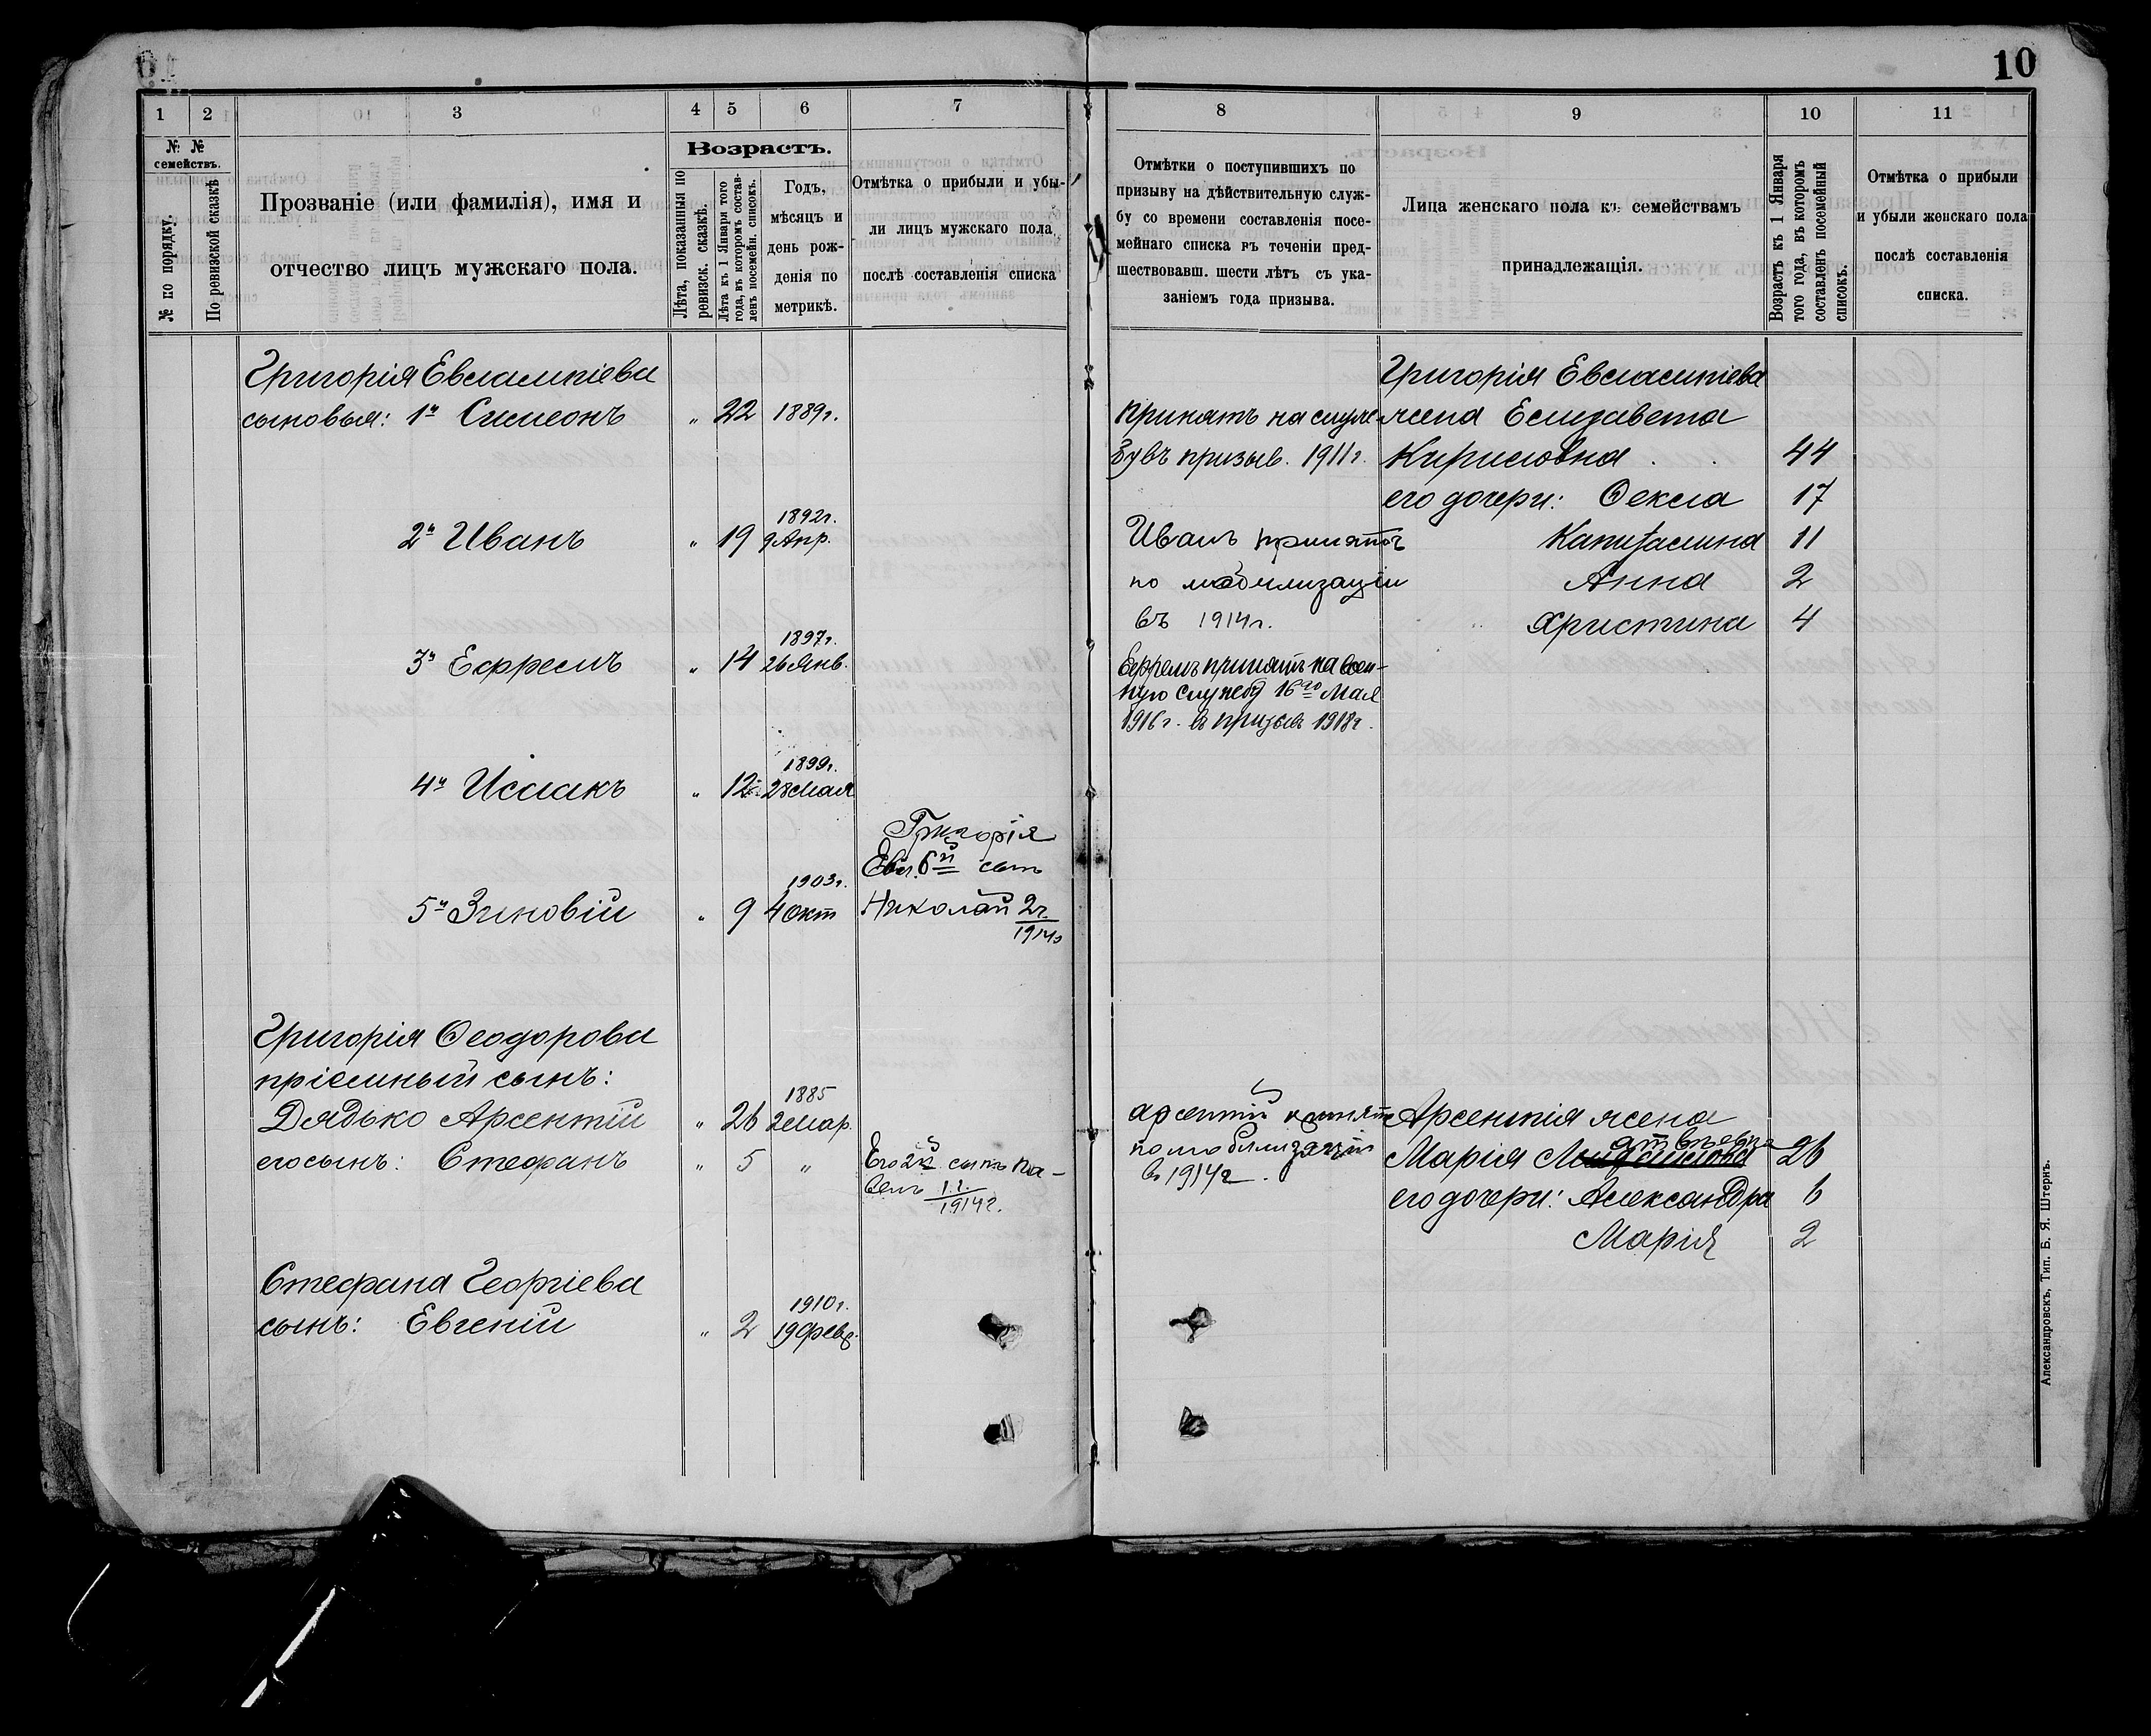 10
1 2 3 4 5 6 7
№ №
семействъ.
№ по порядку.
По ревизской сказкѣ
Прозваніе (или фамилія), имя и
отчество лицъ мужскаго пола.
Возрастъ.
Лѣта, показанныя по
ревизск. сказкѣ.
Лѣта къ 1 Января того
года, въ которомъ состав-
ленъ посемейн. списокъ.
Годъ,
мѣсяцъ и
день рож-
денія по
метрикѣ.
Отмѣтка о прибыли и убы-
ли лицъ мужскаго пола
послѣ составленія списка
Григорія Евслампіева
сыновья: 1й Симеонъ " 22 1889г.
1892г.
2й Иванъ " 19 9 Апр.
1897г.
3й Ефремъ " 14 26 Янв.
1899г.
4й Исаакъ " 12 28 Мая
Григорія
Евсл. 6й сынъ
1903г.
5й Зиновій " 9 4 Окт Николай 2г.
1914г
Григорія Ѳеодорова
пріемный сынъ:
1885
Дядько Арсентій " 26 2 Мар.
его сынъ: Стефанъ " 5 " Его 2й сынъ Па-
велъ 1 г.
1914г.
Стефана Георгіева
1910г.
сынъ: Евгеній " 2 19 Февр.
8 9 10 11
Отмѣтки о поступившихъ по
призыву на дѣйствительную служ-
бу со времени составленія посе-
мейнаго списка въ теченіи пред-
шествовавш. шести лѣтъ съ ука-
заніемъ года призыва.
Лица женскаго пола къ семействамъ
принадлежащія.
Возрастъ къ 1 Января
того года, въ которомъ
составленъ посемейный
списокъ.
Отмѣтка о прибыли
и убыли женскаго пола
послѣ составленія
списка.
Григорія Евслампіева
Принятъ на служ- жена Елизавета
бу въ призыв. 1911г. Кириловна 44
его дочери: Ѳекла 17
Иванъ принятъ Капитолина 11
по мобилизаціи Анна 2
въ 1914г. " Христина 4
Ефремъ принятъ на воен-
ную службу 16го Мая
1916г. въ призывъ 1918г.
Арсентій принятъ Арсентія жена
по мобилизаціи Марія 26
въ 1914г. его дочери: Александра 6
Марія 2
Александровскъ, Тип. Б. Я. Штернъ.